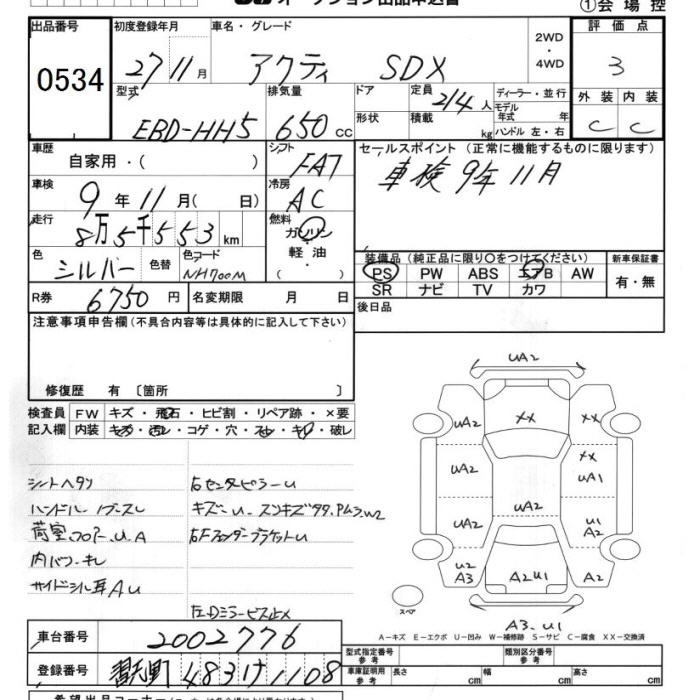 ①会場控
出品番号 初度登録年月 車名・グレード 評価点
0534 27 11月 アクティ SDX 2WD・4WD 3
型式 排気量 ドア 定員 ディーラー・並行 外装 内装
EBD-HH5 650 cc 2/4人 モデル年式 年 C C
形状 積載 kg ハンドル 左・右
車歴 自家用・( ) シフト FAT セールスポイント(正常に機能するものに限ります)
車検 9年11月( 日) 冷房 AC 車検 9年11月
走行 8万5千553km 燃料 ガソリン・軽油 ( )
装備品(純正品に限り○をつけてください) 新車保証書
色 シルバー 色替 色コード NH700M PS PW ABS エアB AW 有・無
SR ナビ TV カワ
R券 6750円 名変期限 月 日 後日品
注意事項申告欄(不具合内容等は具体的に記入して下さい)
修復歴 有 〔箇所 〕
検査員 FW キズ・飛石・ヒビ割・リペア跡・×要
記入欄 内装 キズ・汚レ・コゲ・穴・スレ・キレ・破レ
シートヘタリ 右センターピラーU
荷室フロアーU.A
内バリキレ
サイドシル耳AU
UA2
UA2 XX XX A2
UA2 UA1
UA2 UA2 U1 A2
U2 A3 A2U1 A2
スペア
A3.U1
A-キズ E-エクボ U-凹み W-補修跡 S-サビ C-腐食 XX-交換済
車台番号 2002776 型式指定番号 参考 類別区分番号 参考
登録番号 483け1108 車庫証明用 参考 長さ cm 幅 cm 高さ cm